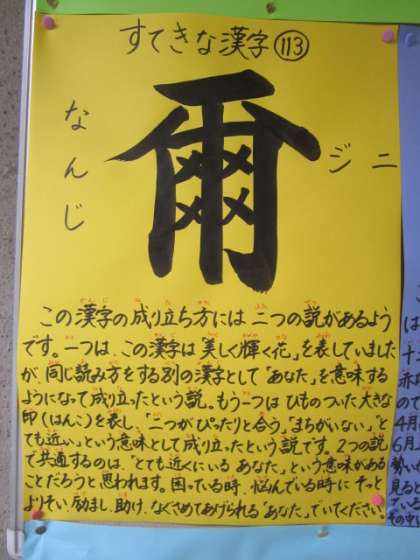 すてきな漢字 113
爾
なんじ
ジ ニ
この漢字の成り立ち方には二つの説があるよう
です。一つは、この漢字は「美しく輝く花」を表していました
が、同じ読み方をする別の漢字として「あなた」を意味する
ようになって成り立ったという説。もう一つはひものついた大きな
印(はんこ)を表し「二つがぴったりと合う」「まちがいない」「と
ても近い」という意味として成り立ったという説です。2つの説
で共通するのは、「とても近くにいるあなた」という意味がある
ことだろうと思われます。困っている時、悩んでいる時にそっと
よりそい、励まし、助け、なぐさめてあげられる「あなた」でいてください。
は
十
赤
ので
4月
6月
勢い
見ると
ている
その中に